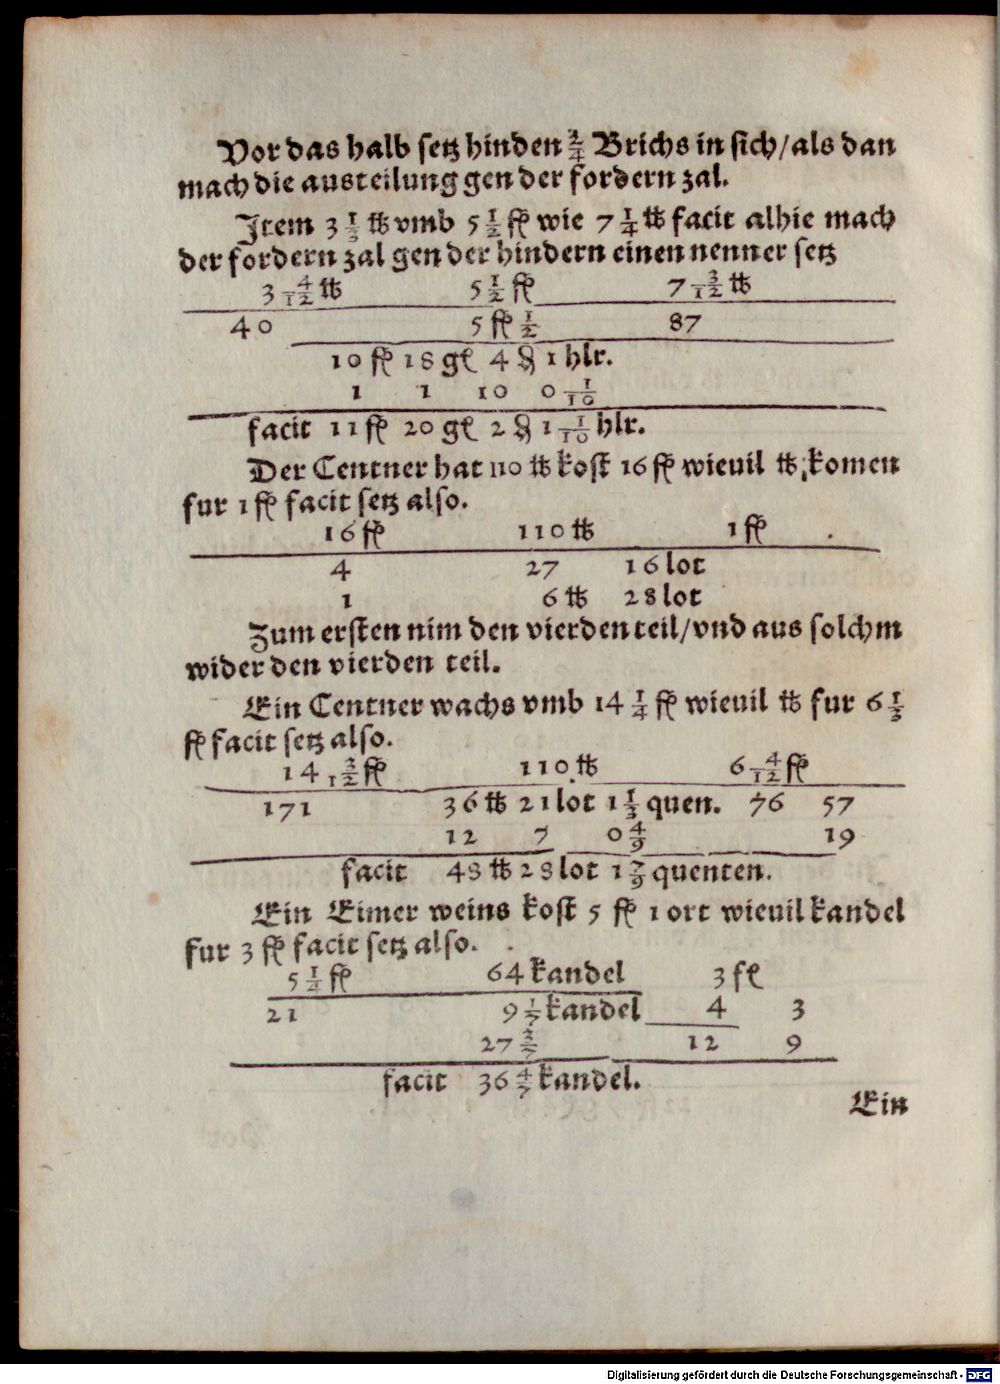 Vor das halb setz hinden 2/4 Brichs in sich/als dan
mach die austeilung gen der fordern zal.
Item 3 1/3 ℔ vmb 5 1/2 fl wie 7 1/4 ℔ facit alhie mach
der fordern zal gen der hindern einen nenner setz
3 4/12 ℔ 5 1/2 fl 7 3/12 ℔
40 5 fl 1/2 87
10 fl 18 gl 4 ₰ 1 hlr.
1 1 10 0 1/10
facit 11 fl 20 gl 2 ₰ 1 1/10 hlr.
Der Centner hat 110 ℔ kost 16 fl wieuil ℔ komen
fur 1 fl facit setz also.
16 fl 110 ℔ 1 fl
4 27 16 lot
1 6 ℔ 28 lot
Zum ersten nim den vierden teil/vnd aus solchm
wider den vierden teil.
Ein Centner wachs vmb 14 1/4 fl wieuil ℔ fur 6 1/3
fl facit setz also.
14 3/12 fl 110 ℔ 6 4/12 fl
171 36 ℔ 21 lot 1 1/3 quen. 76 57
12 7 0 4/9 19
facit 48 ℔ 28 lot 1 7/9 quenten.
Ein Eimer weins kost 5 fl 1 ort wieuil kandel
fur 3 fl facit setz also.
5 1/4 fl 64 kandel 3 fl
21 9 1/7 kandel 4 3
27 3/7 12 9
facit 36 4/7 kandel.
Ein
Digitalisierung gefördert durch die Deutsche Forschungsgemeinschaft - DFG